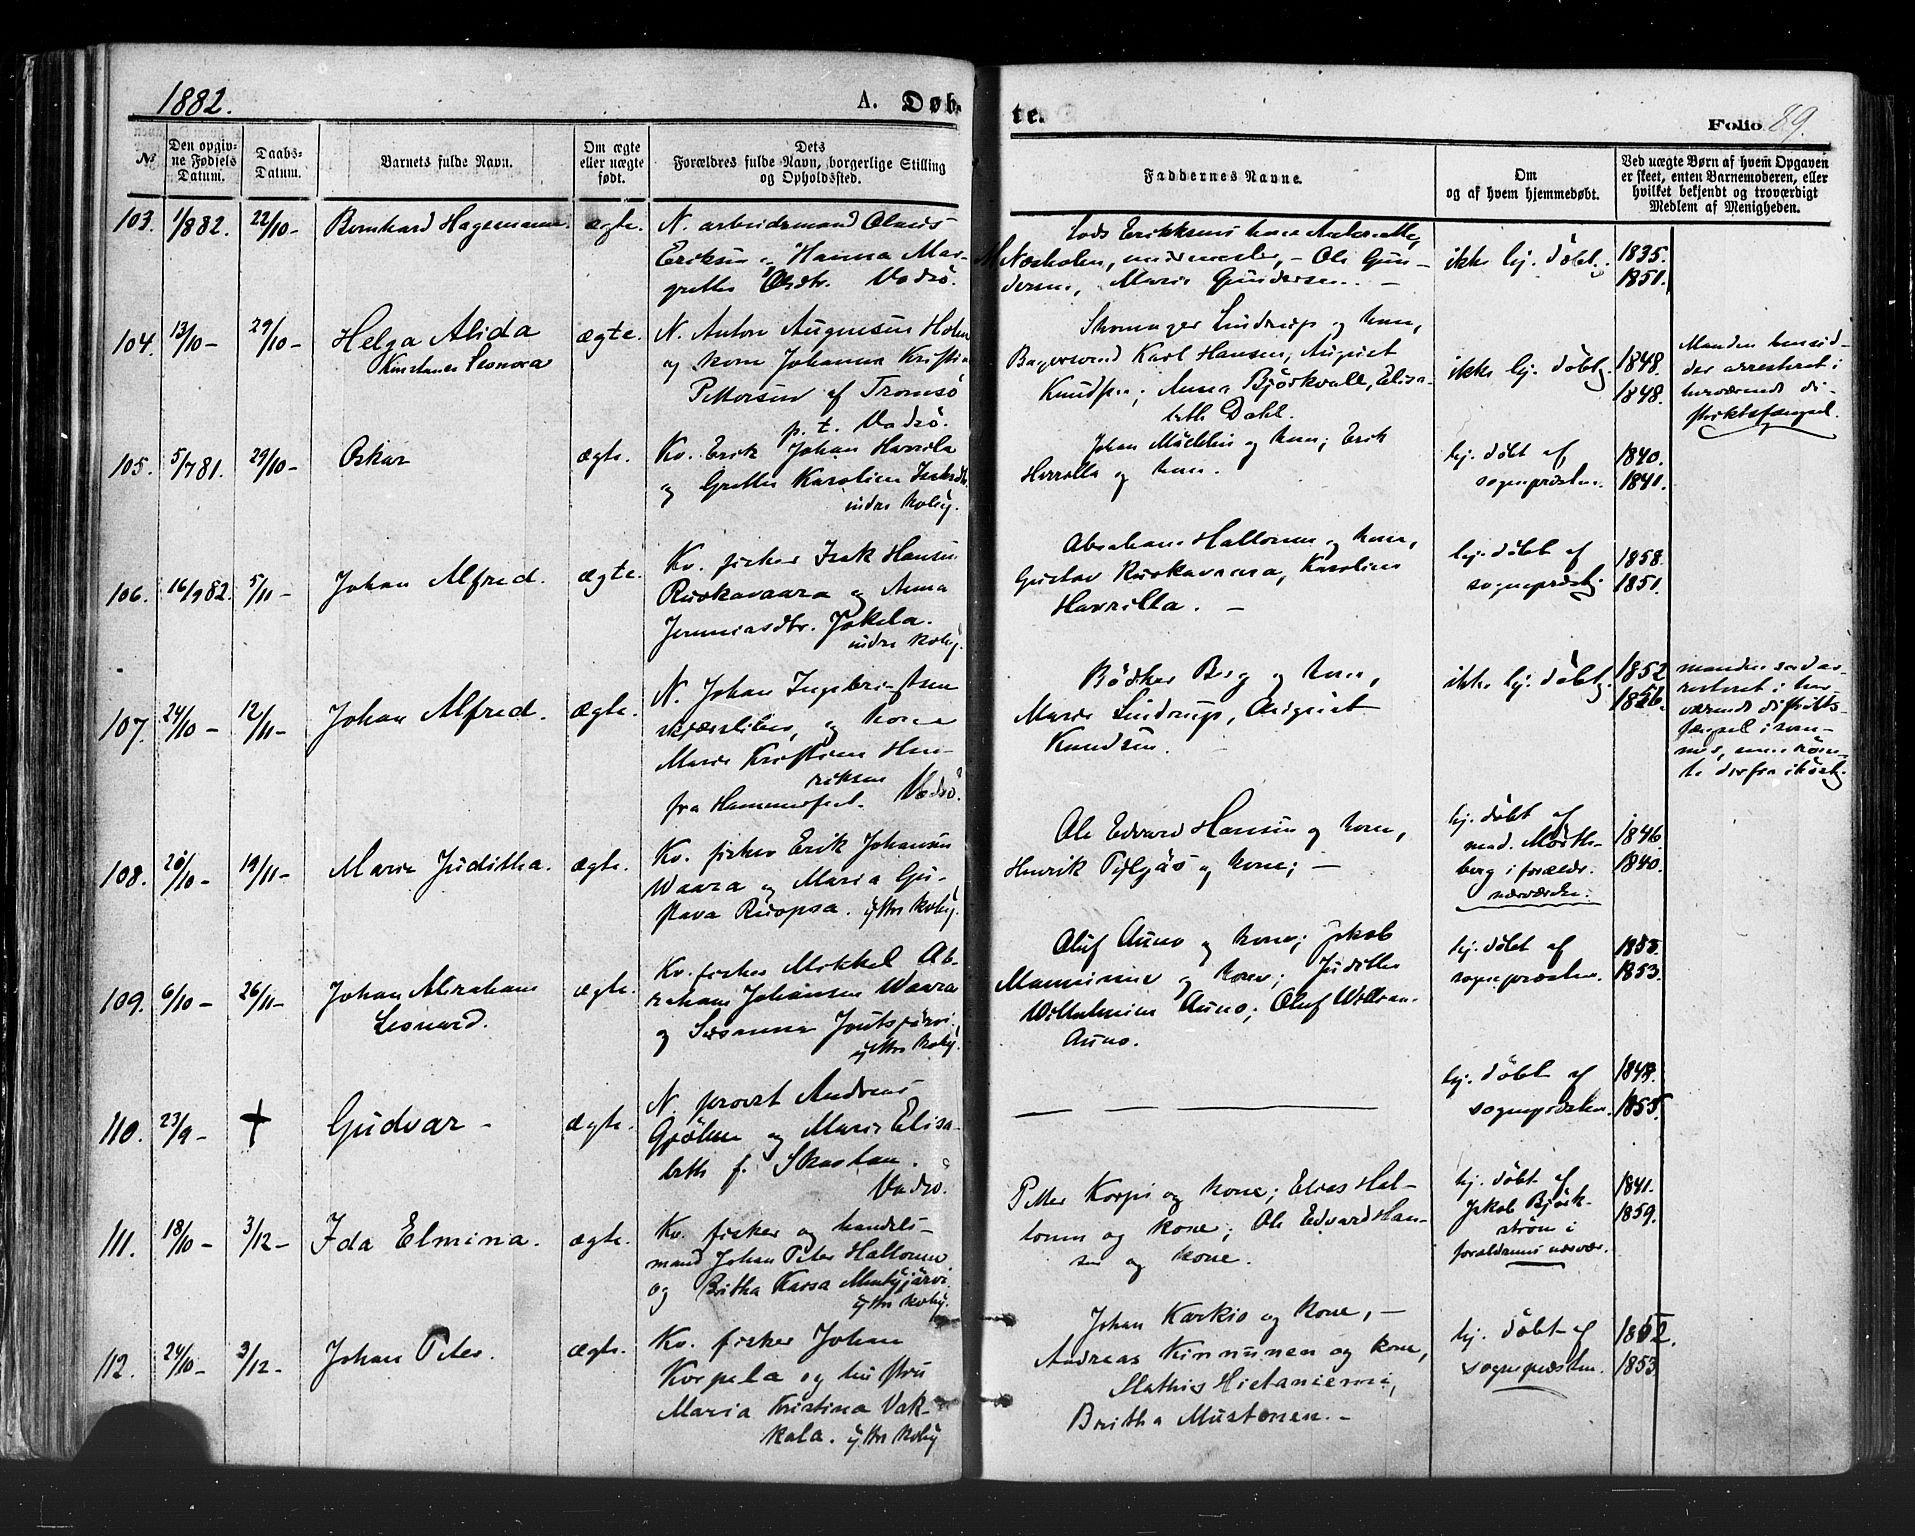 1882.
A. Døb-
te.
Folio 89.
No
Den opgiv-
ne Fødsels
Datum.
Daabs-
Datum.
Barnets fulde Navn.
Om ægte
eller uægte
født.
Dets
Forældres fulde Navn, borgerlige Stilling
og Opholdssted.
Faddernes Navne.
Om
og af hvem hjemmedøbt.
Ved uægte Børn af hvem Opgaven
er skeet, enten Barnemoderen, eller
hvilket bekjendt og troværdigt
Medlem af Menigheden.
103. 1/8 82. 22/10- Bernhard Hagemann. ægte.
N. arbeidsmand Olaus
Eriksen og Hanna Mar-
grethe Vadsö.
Lods Eriksens kone
Næsholm, - Ole Gun-
dersen, Marie Gundersen. -
ikke hj. døbt.
1835.
1851.
104. 13/10- 29/10- Helga Alida
Konstance Leonora
ægte.
N. Anton Augensen Holm
og kone Johanna Kristi
Pettersen af Tromsö
p. t. Vadsö.
Skomager Lindrup og kone,
Bagersvend Karl Hansen, August
Knudsen, Anna Björkvall, Elisa-
beth Dahl.
ikke hj. døbt
1848.
1848.
Manden
der arresteret i
herværende di-
striktsfængsel.
105. 5/7 81. 29/10- Oskar ægte.
Kv. Erik Johan Harrila
og Grethe Karoline
indre kvby.
Johan og kone; Erik
Harrilla og kone.
hj. døbt af
sognepræsten.
1840.
1841.
106. 16/9 82. 5/11- Johan Alfred. ægte.
Kv. fisker Isak Hansen
Ruokavaara og Anna
Jeremiasdtr. Jokela.
indre kvby.
Abraham Hallonen og kone,
Gustav Ruokavaara, Karoline
Harrilla. -
hj. døbt af
sognepræst.
1858.
1851.
107. 24/10- 12/11- Johan Alfred. ægte.
N. Johan Ingebrigtsen
skjærsliber, og kone
Marie Kristine Hen-
riksen
fra Hammerfest. Vadsö.
Bödker Berg og kone,
Marie Lindrup, August
Knudsen.
ikke hj. døbt.
1852
1856.
manden sad ar-
resteret i her-
værende distrikts-
fængsel i som-
mer, men röm-
te derfra i höst.
108. 20/10- 19/11- Maria Juditha. ægte.
Kv. fisker Erik Johansen
Waara og Maria Gu-
stava Ruopsa. ytre kvby.
Ole Edvard Hansen og kone,
Henrik og kone; -
hj. døbt af
mad.
berg i forældr.
nærværelse.
1846.
1840.
109. 6/10- 26/11- Johan Abraham
Leonard.
ægte.
Kv. fisker Mikkel Ab-
raham Johansen Waara
og Susanna Joutsjärvi,
ytre kvby.
Oluf Auno og kone; Jakob
Manninen og kone; Judithe
Wilhelmine Auno; Oluf
Auno.
hj. døbt af
sognepræsten.
1853.
110. 23/9- + Gudvar - ægte.
N. provst Andreas
Gjölme og Marie Elisa-
beth f. Skavlan.
Vadsö.
hj. døbt af
sognepræsten.
1855.
111. 18/10- 3/12- Ida Elmina. ægte.
Kv. fisker og handels-
mand Johan Peter Hallonen
og Britha Kaisa
ytre kvby.
Petter Korpi og kone; Elias Hal-
lonen og kone; Ole Edvard Han-
sen og kone.
hj. døbt af
Jakob Björk-
ström i
forældrenes nærvær.
1841.
1859.
112. 24/10- 3/12- Johan Peter. ægte.
Kv. fisker Johan
Korpela og hustru
Maria Kristina Vak-
kala. ytre kvby
Johan Karkio og kone, -
Andreas Kinnunen og kone,
Mathis Hietaniemi,
Britha Mustonen. -
hj. døbt af
sognepræsten.
1852.
1853.